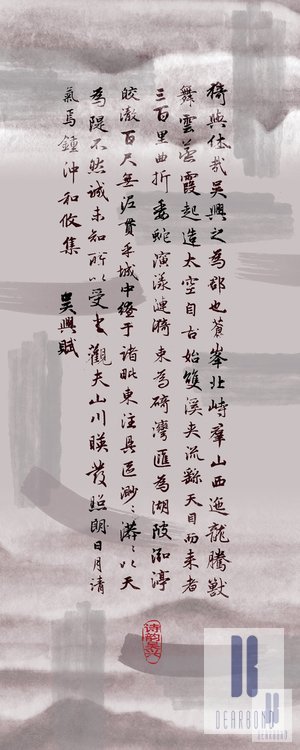 猗與休哉吳興之為郡也蒼峯北峙羣山西迤龍騰獸
舞雲蒸霞起造太空自古始雙溪夾流繇天目而来者
三百里曲折委蛇演漾漣漪束為碕灣匯為湖陂泓渟
皎澈百尺無泥貫乎城中繚于諸毗東注具區渺〻漭〻以天
為隄不然誠未知所以受之觀夫山川暎發照朗日月清
氣焉鍾沖和攸集
吳興賦
诗韵吴兴
DEARBOND
DEARBOND